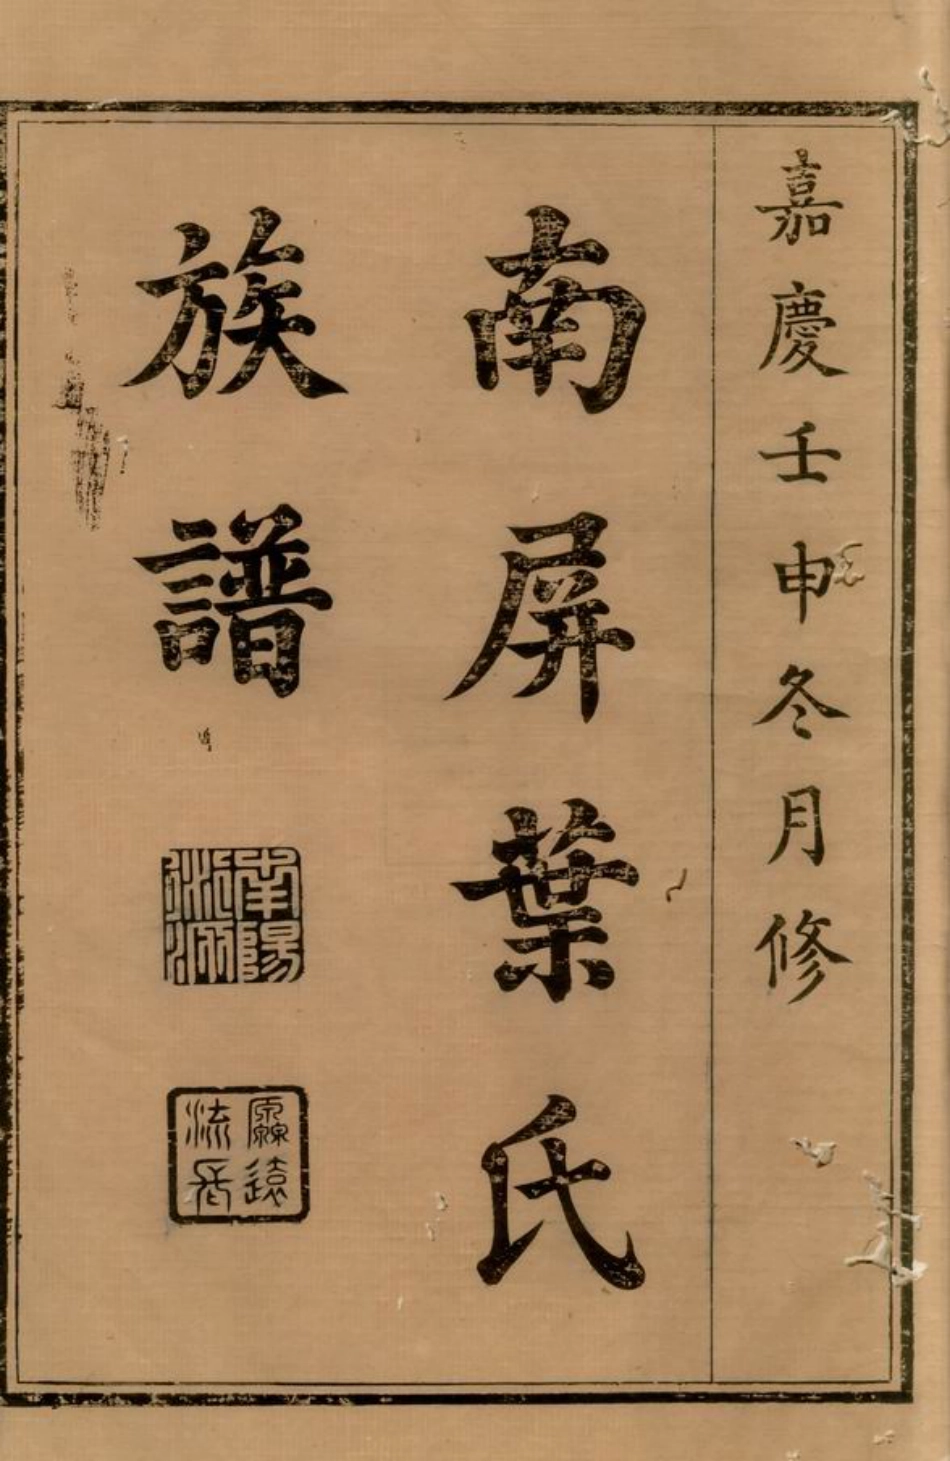 嘉慶壬申冬月修
南屏葉氏
族譜
南陽
源遠流長